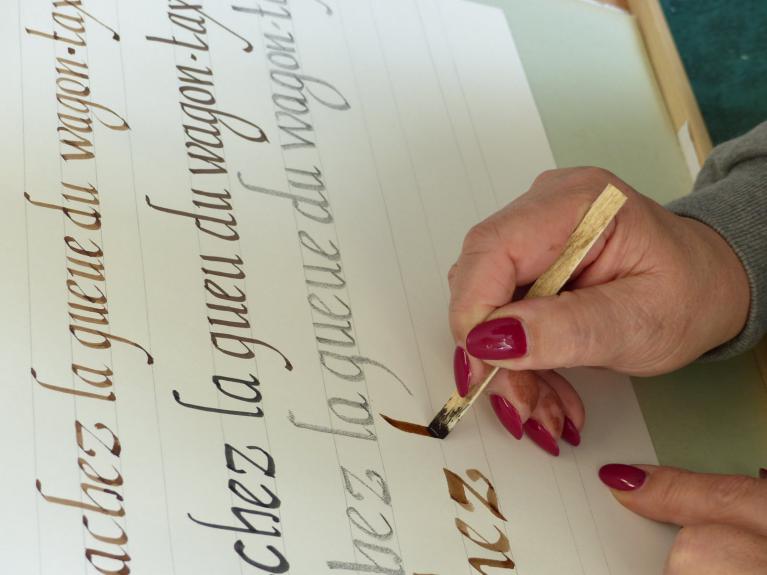 achez la queue du wagon-tax
chez la queu du wagon-tax
hez la queue du wagon-t
hez